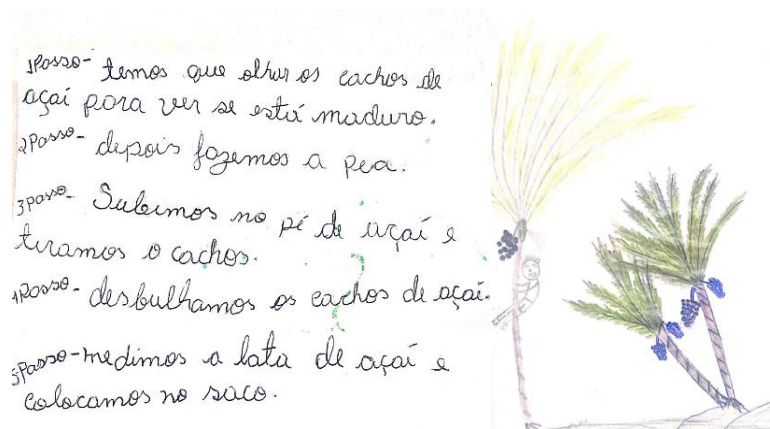 1Passo- temos que olhar os cachos de
açaí para ver se está maduro.
2Passo- depois fazemos a pea.
3passo- Subimos no pé de açaí e
tiramos o cachos.
4Passo- desbulhamos os cachos de açaí.
5Passo- medimos a lata de açaí e
colocamos no saco.